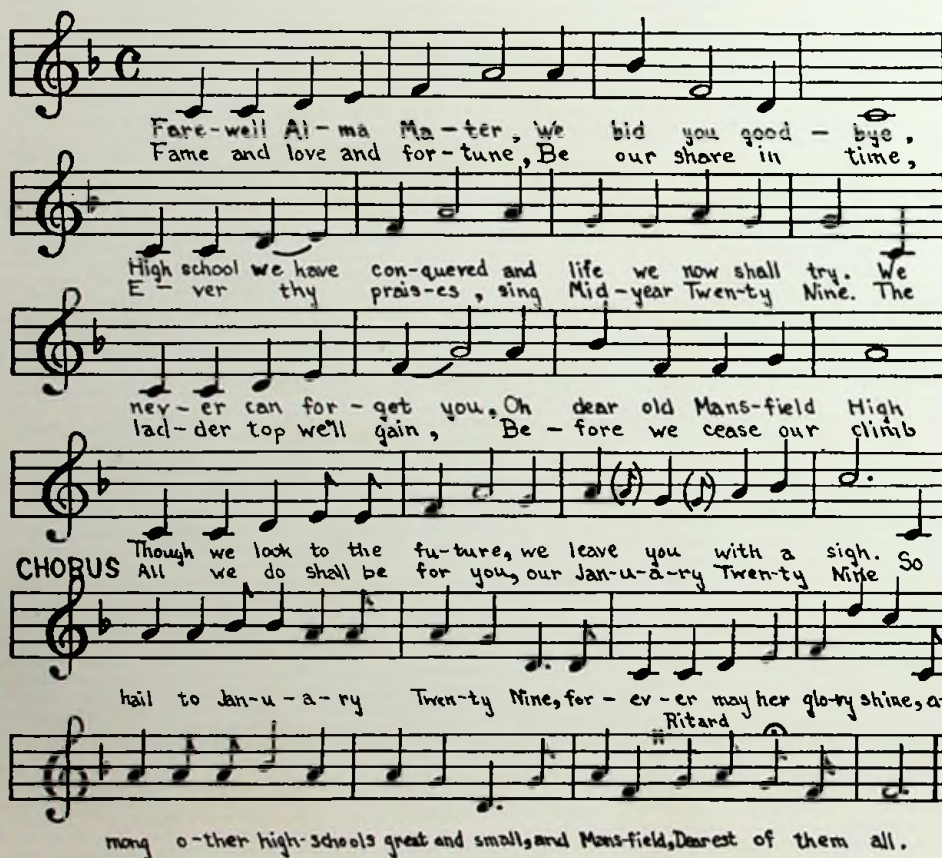 Fare-well Al-ma Ma-ter, We bid you good - bye,
Fame and love and for-tune, Be our share in time,
High school we have con-quered and life we now shall try. We
E - ver thy prais-es, sing Mid-year Twen-ty Nine. The
nev-er can for-get you, Oh dear old Mans-field High
lad-der top we'll gain, Be-fore we cease our climb
Though we look to the fu-ture, we leave you with a sigh.
CHORUS All we do shall be for you, our Jan-u-a-ry Twen-ty Nine So
hail to Jan-u-a-ry Twen-ty Nine, for-ev-er may her glo-ry shine, a-
Ritard
mong o-ther high-schools great and small, and Mans-field, Dearest of them all.